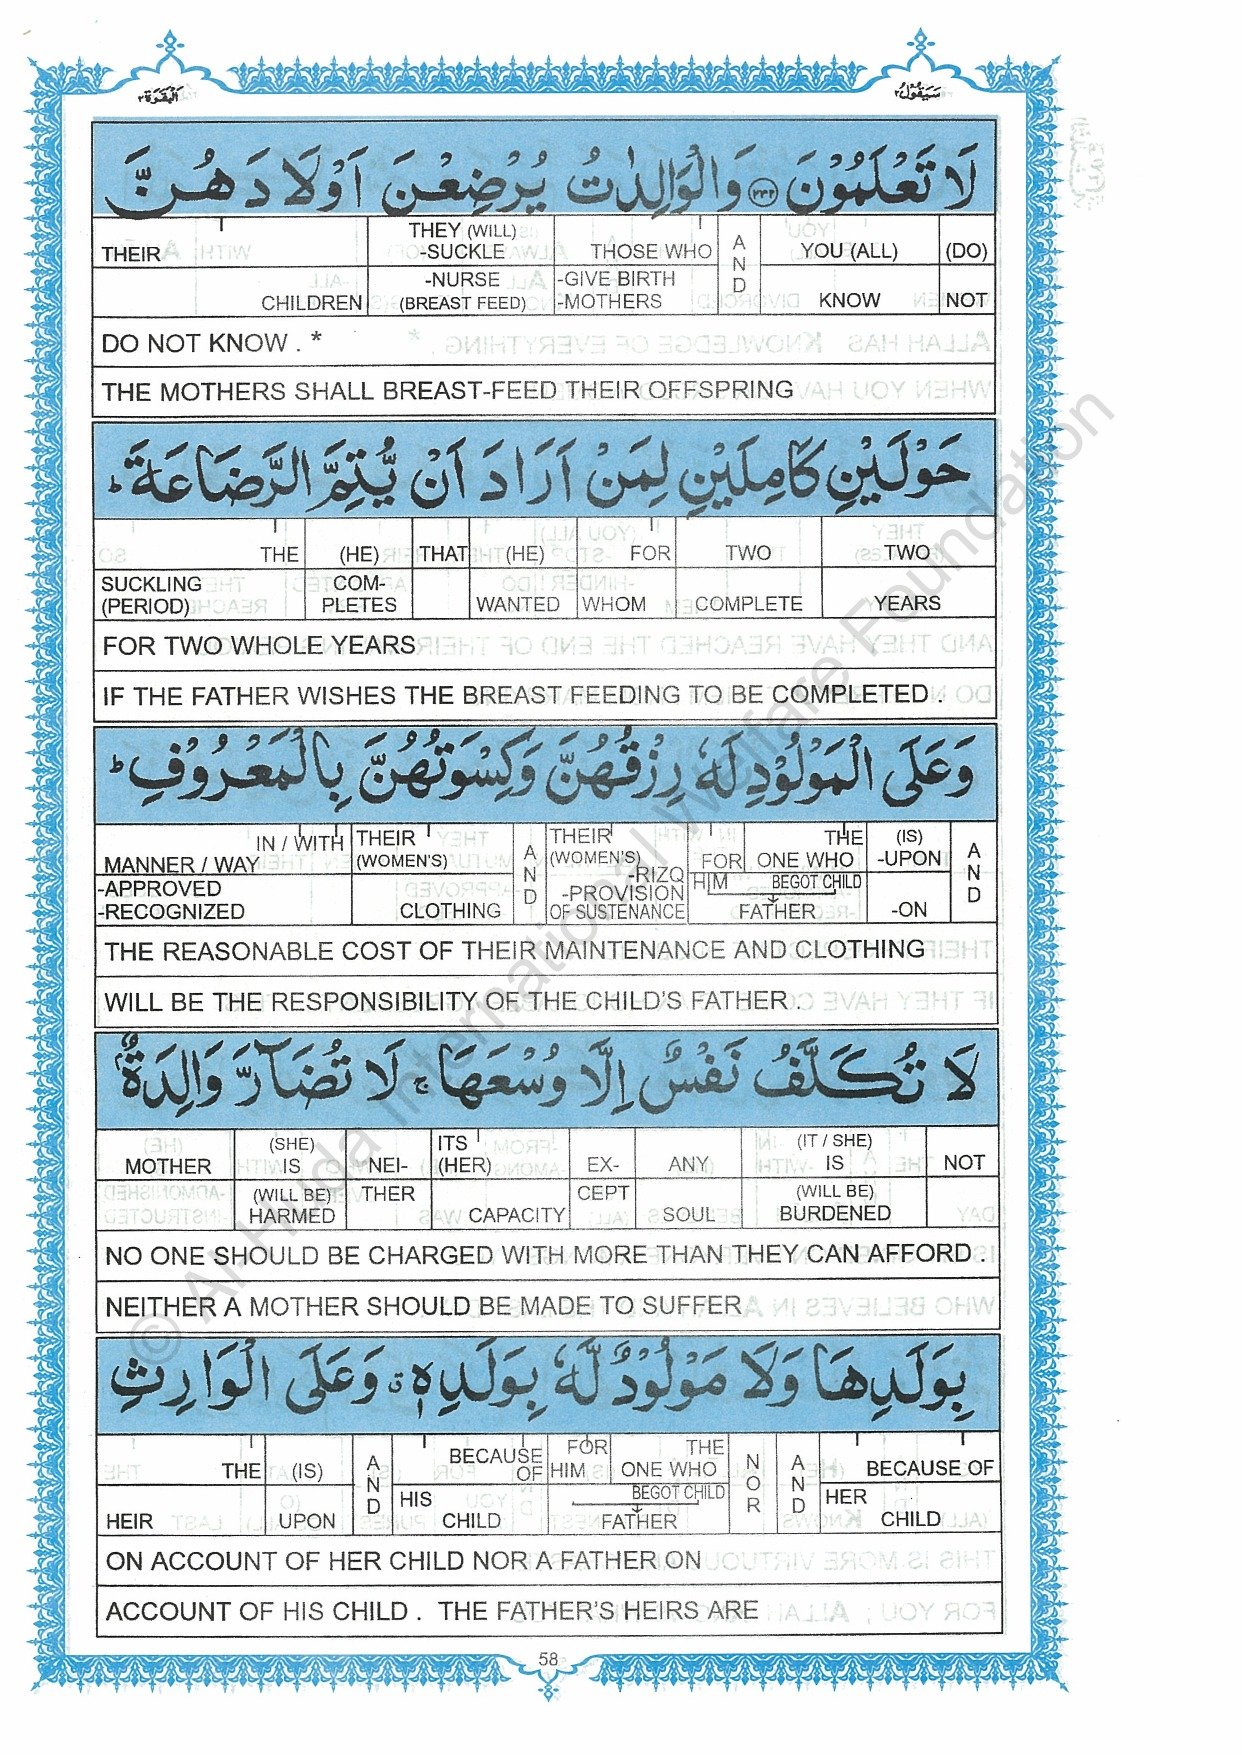 البقرة٢ سيقول٢
لَا تَعْلَمُوْنَ ﴿٢٣٢﴾ وَالْوَالِدٰتُ يُرْضِعْنَ اَوْلَادَهُنَّ
THEIR THEY (WILL) -SUCKLE THOSE WHO AND YOU (ALL) (DO)
CHILDREN -NURSE (BREAST FEED) -GIVE BIRTH -MOTHERS KNOW NOT
DO NOT KNOW . *
THE MOTHERS SHALL BREAST-FEED THEIR OFFSPRING
حَوْلَيْنِ كَامِلَيْنِ لِمَنْ اَرَادَ اَنْ يُّتِمَّ الرَّضَاعَةَ ؕ
THE (HE) THAT (HE) FOR TWO TWO
SUCKLING (PERIOD) COM- PLETES WANTED WHOM COMPLETE YEARS
FOR TWO WHOLE YEARS
IF THE FATHER WISHES THE BREAST FEEDING TO BE COMPLETED .
وَعَلَى الْمَوْلُوْدِ لَهٗ رِزْقُهُنَّ وَكِسْوَتُهُنَّ بِالْمَعْرُوْفِ ؕ
IN / WITH MANNER / WAY THEIR (WOMEN'S) AND THEIR (WOMEN'S) -RIZQ FOR THE ONE WHO (IS) -UPON AND
-APPROVED -RECOGNIZED CLOTHING -PROVISION OF SUSTENANCE HIM BEGOT CHILD FATHER -ON
THE REASONABLE COST OF THEIR MAINTENANCE AND CLOTHING
WILL BE THE RESPONSIBILITY OF THE CHILD'S FATHER .
لَا تُكَلَّفُ نَفْسٌ اِلَّا وُسْعَهَا ۚ لَا تُضَآرَّ وَالِدَةٌۢ
MOTHER (SHE) IS NEI- ITS (HER) EX- ANY (IT / SHE) IS NOT
(WILL BE) HARMED THER CAPACITY CEPT SOUL (WILL BE) BURDENED
NO ONE SHOULD BE CHARGED WITH MORE THAN THEY CAN AFFORD .
NEITHER A MOTHER SHOULD BE MADE TO SUFFER
بِوَلَدِهَا وَلَا مَوْلُوْدٌ لَّهٗ بِوَلَدِهٖ ۗ وَعَلَى الْوَارِثِ
THE (IS) AND BECAUSE OF FOR HIM THE ONE WHO NOR AND BECAUSE OF
HEIR UPON HIS CHILD BEGOT CHILD FATHER HER CHILD
ON ACCOUNT OF HER CHILD NOR A FATHER ON
ACCOUNT OF HIS CHILD . THE FATHER'S HEIRS ARE
58
© Al-Huda International Welfare Foundation